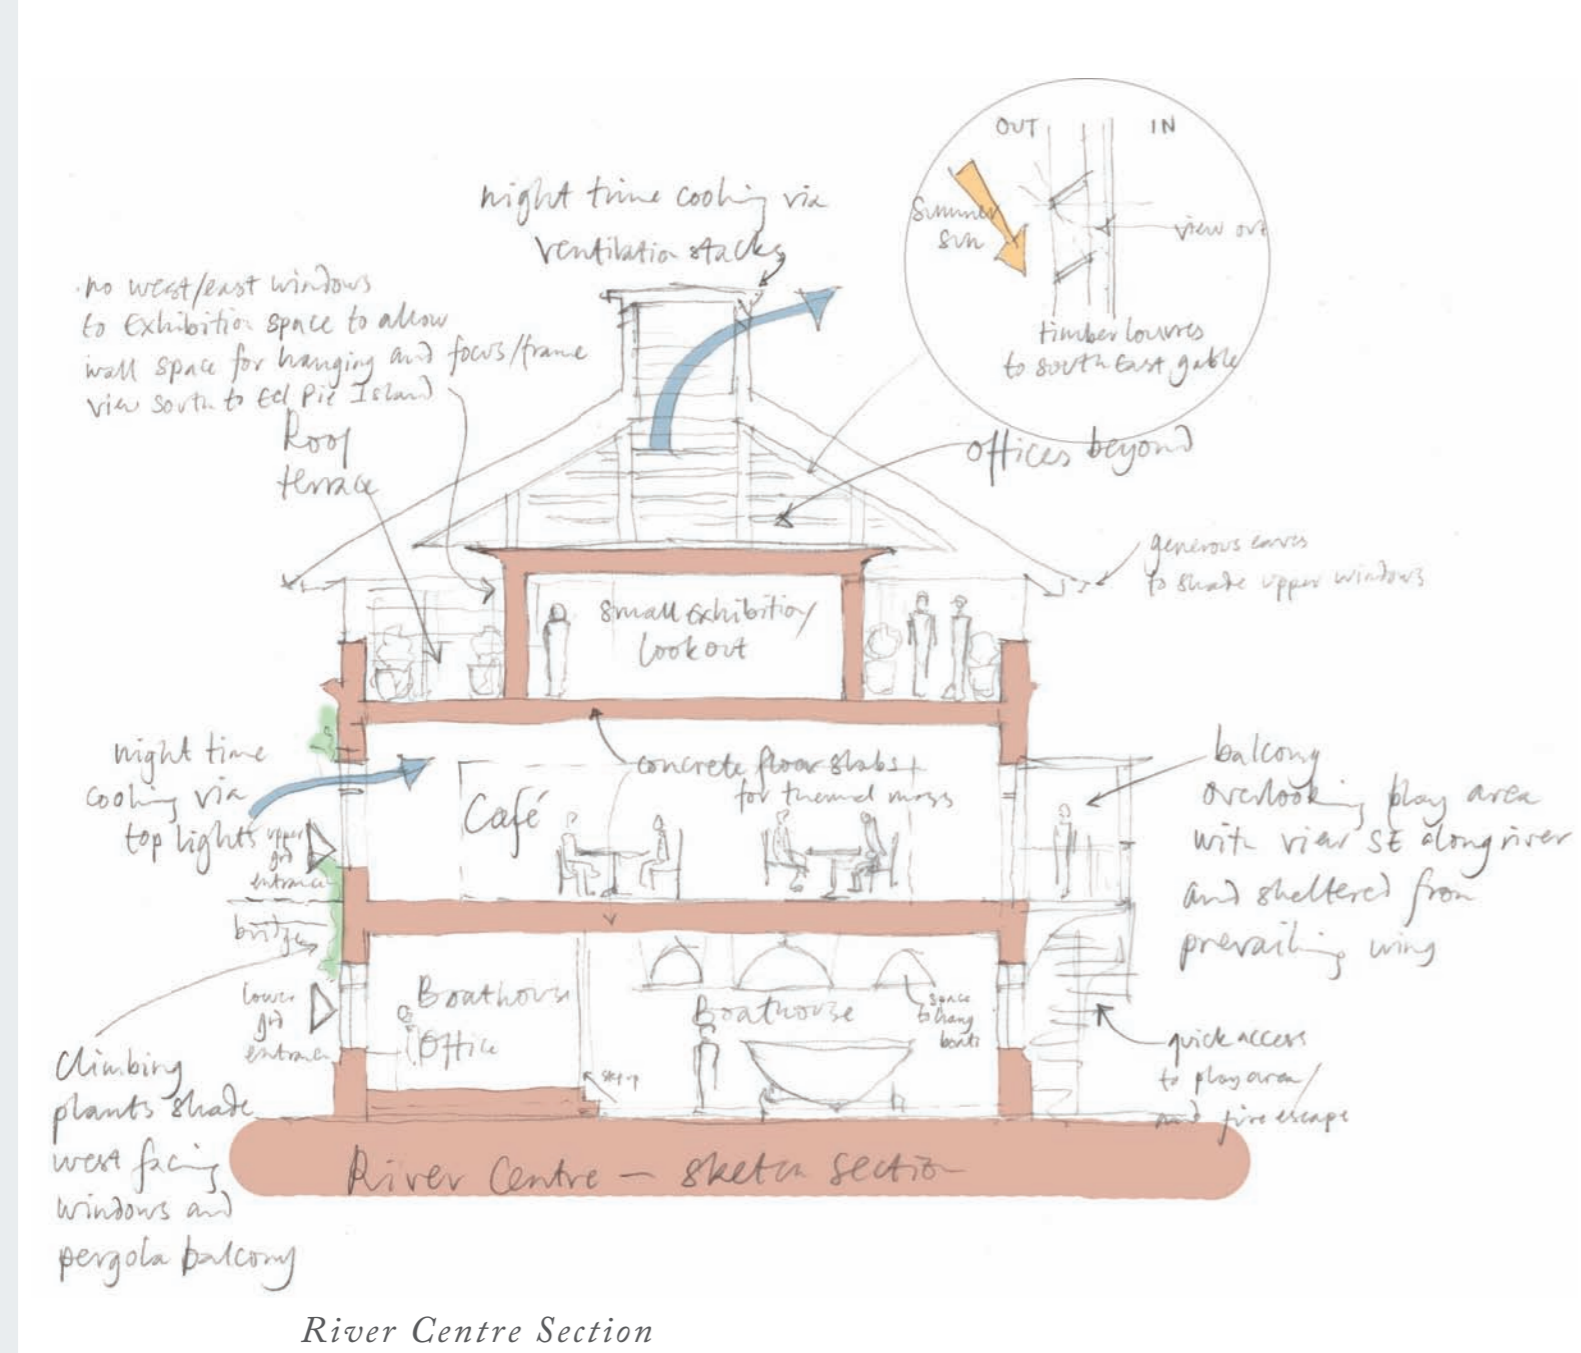 OUT
IN
Summer
sun
view out
timber louvres
to south East gable
night time cooling via
ventilation stacks
no west/east windows
to Exhibition space to allow
wall space for hanging and focus/frame
view south to Eel Pie Island
Roof
terrace
offices beyond
generous eaves
to shade upper windows
small exhibition/
lookout
night time
cooling via
top lights
upper
grd
entrance
bridge
concrete floor slabs
for thermal mass
Café
balcony
overlooking play area
with view SE along river
and sheltered from
prevailing wing
lower
grd
entrance
Boathouse
Office
step up
Boathouse
space
to hang
boats
quick access
to play area/
and fire escape
Climbing
plants shade
west facing
windows and
pergola balcony
River Centre — sketch section
River Centre Section